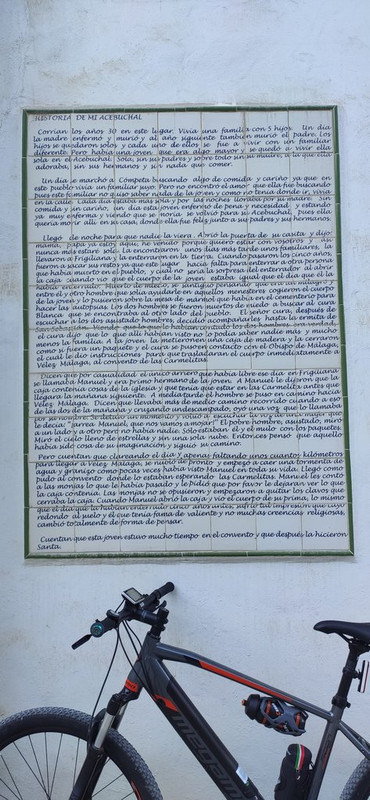 HISTORIA DE MI ACEBUCHAL
Corrían los años 30 en este lugar. Vivía una familia con 5 hijos. Un día
la madre enfermó y murió y al año siguiente también murió el padre. Los
hijos se quedaron solos y cada uno de ellos se fue a vivir con un familiar
diferente. Pero había una joven que era algo mayor y se quedó a vivir ella
sola en el Acebuchal. Sola, sin sus padres y sobre todo sin su madre, a la que ella
adoraba, sin sus hermanos y sin nada que comer.
Un día se marchó a Cómpeta buscando algo de comida y cariño ya que en
este pueblo vivía un familiar suyo. Pero no encontró el amor que ella fue buscando
pues este familiar no quiso saber nada de la joven y como no tenía donde ir, vivía
en la calle. Cada día estaba más sola y por las noches lloraba por su madre. Sin
comida y sin cariño, un día esta joven enfermó de pena y necesidad y estando
ya muy enferma y viendo que se moría se volvió para su Acebuchal, pues ella
quería morir allí en su casa, donde ella fue feliz junto a sus padres y sus hermanos.
Llegó de noche para que nadie la viera. Abrió la puerta de su casita y dijo:
mamá, papá ya estoy aquí, he venido porque quiero estar con vosotros y así
nunca más estaré sola. La encontraron unos días más tarde unos familiares, la
llevaron a Frigiliana y la enterraron en la tierra. Cuando pasaron los cinco años,
fueron a sacar sus restos ya que este lugar hacía falta para enterrar a otra persona
que había muerto en el pueblo, y cuál no sería la sorpresa del enterrador al abrir
la caja cuando vio que el cuerpo de la joven estaba igual que el día que él la
había enterrado. Muerto de miedo, se santiguó pensando que era un milagro y
entre él y otro hombre que solía ayudarle en aquellos menesteres cogieron el cuerpo
de la joven y lo pusieron sobre la mesa de mármol que había en el cementerio para
hacer las autopsias. Los dos hombres se fueron muertos de miedo a buscar al cura
Blanca que se encontraba al otro lado del pueblo. El señor cura, después de
escuchar a los dos asustados hombres, decidió acompañarles hasta la ermita de
San Sebastián. Viendo que lo que le habían contado los dos hombres era verdad,
el cura dijo que lo que allí habían visto no lo podía saber nadie más y mucho
menos la familia. A la joven la metieron en una caja de madera y la cerraron
como si fuera un paquete y el cura se puso en contacto con el Obispo de Málaga,
el cual le dio instrucciones para que trasladaran el cuerpo inmediatamente a
Vélez Málaga, al convento de las Carmelitas.
Dicen que por casualidad el único arriero que había libre ese día en Frigiliana
se llamaba Manuel y era primo hermano de la joven. A Manuel le dijeron que la
caja contenía cosas de la iglesia y que tenía que estar en las Carmelitas antes que
llegara la mañana siguiente. A medianoche el hombre se puso en camino hacia
Vélez Málaga. Dicen que llevaba más de medio camino recorrido cuando a eso
de las dos de la mañana y cruzando un descampado, oyó una voz que lo llamaba
por su nombre. Se detuvo un momento y volvió a escuchar la voz de una mujer que
le decía: "¡arrea, Manuel, que nos vamos a mojar!" El pobre hombre, asustado, miró
a un lado y a otro pero no había nadie. Sólo estaban él y el mulo con los paquetes.
Miró el cielo lleno de estrellas y sin una sola nube. Entonces pensó que aquello
había sido cosa de su imaginación y siguió su camino.
Pero cuentan que clareando el día y apenas faltando unos cuantos kilómetros
para llegar a Vélez Málaga, se nubló de pronto y empezó a caer una tormenta de
agua y granizo como pocas veces había visto Manuel en toda su vida. Llegó como
pudo al convento donde lo estaban esperando las Carmelitas. Manuel les contó
a las monjas lo que le había pasado y le pidió que por favor le dejaran ver lo que
la caja contenía. Las monjas no se opusieron y empezaron a quitar los clavos que
cerraba la caja. Cuando Manuel abrió la caja y vio el cuerpo de su prima, lo mismo
que el día que la habían enterrado cinco años antes, sufrió tal impresión que cayó
redondo al suelo y él que tenía fama de valiente y no muchas creencias religiosas,
cambió totalmente de forma de pensar.
Cuentan que esta joven estuvo mucho tiempo en el convento y que después la hicieron
Santa.
megamo